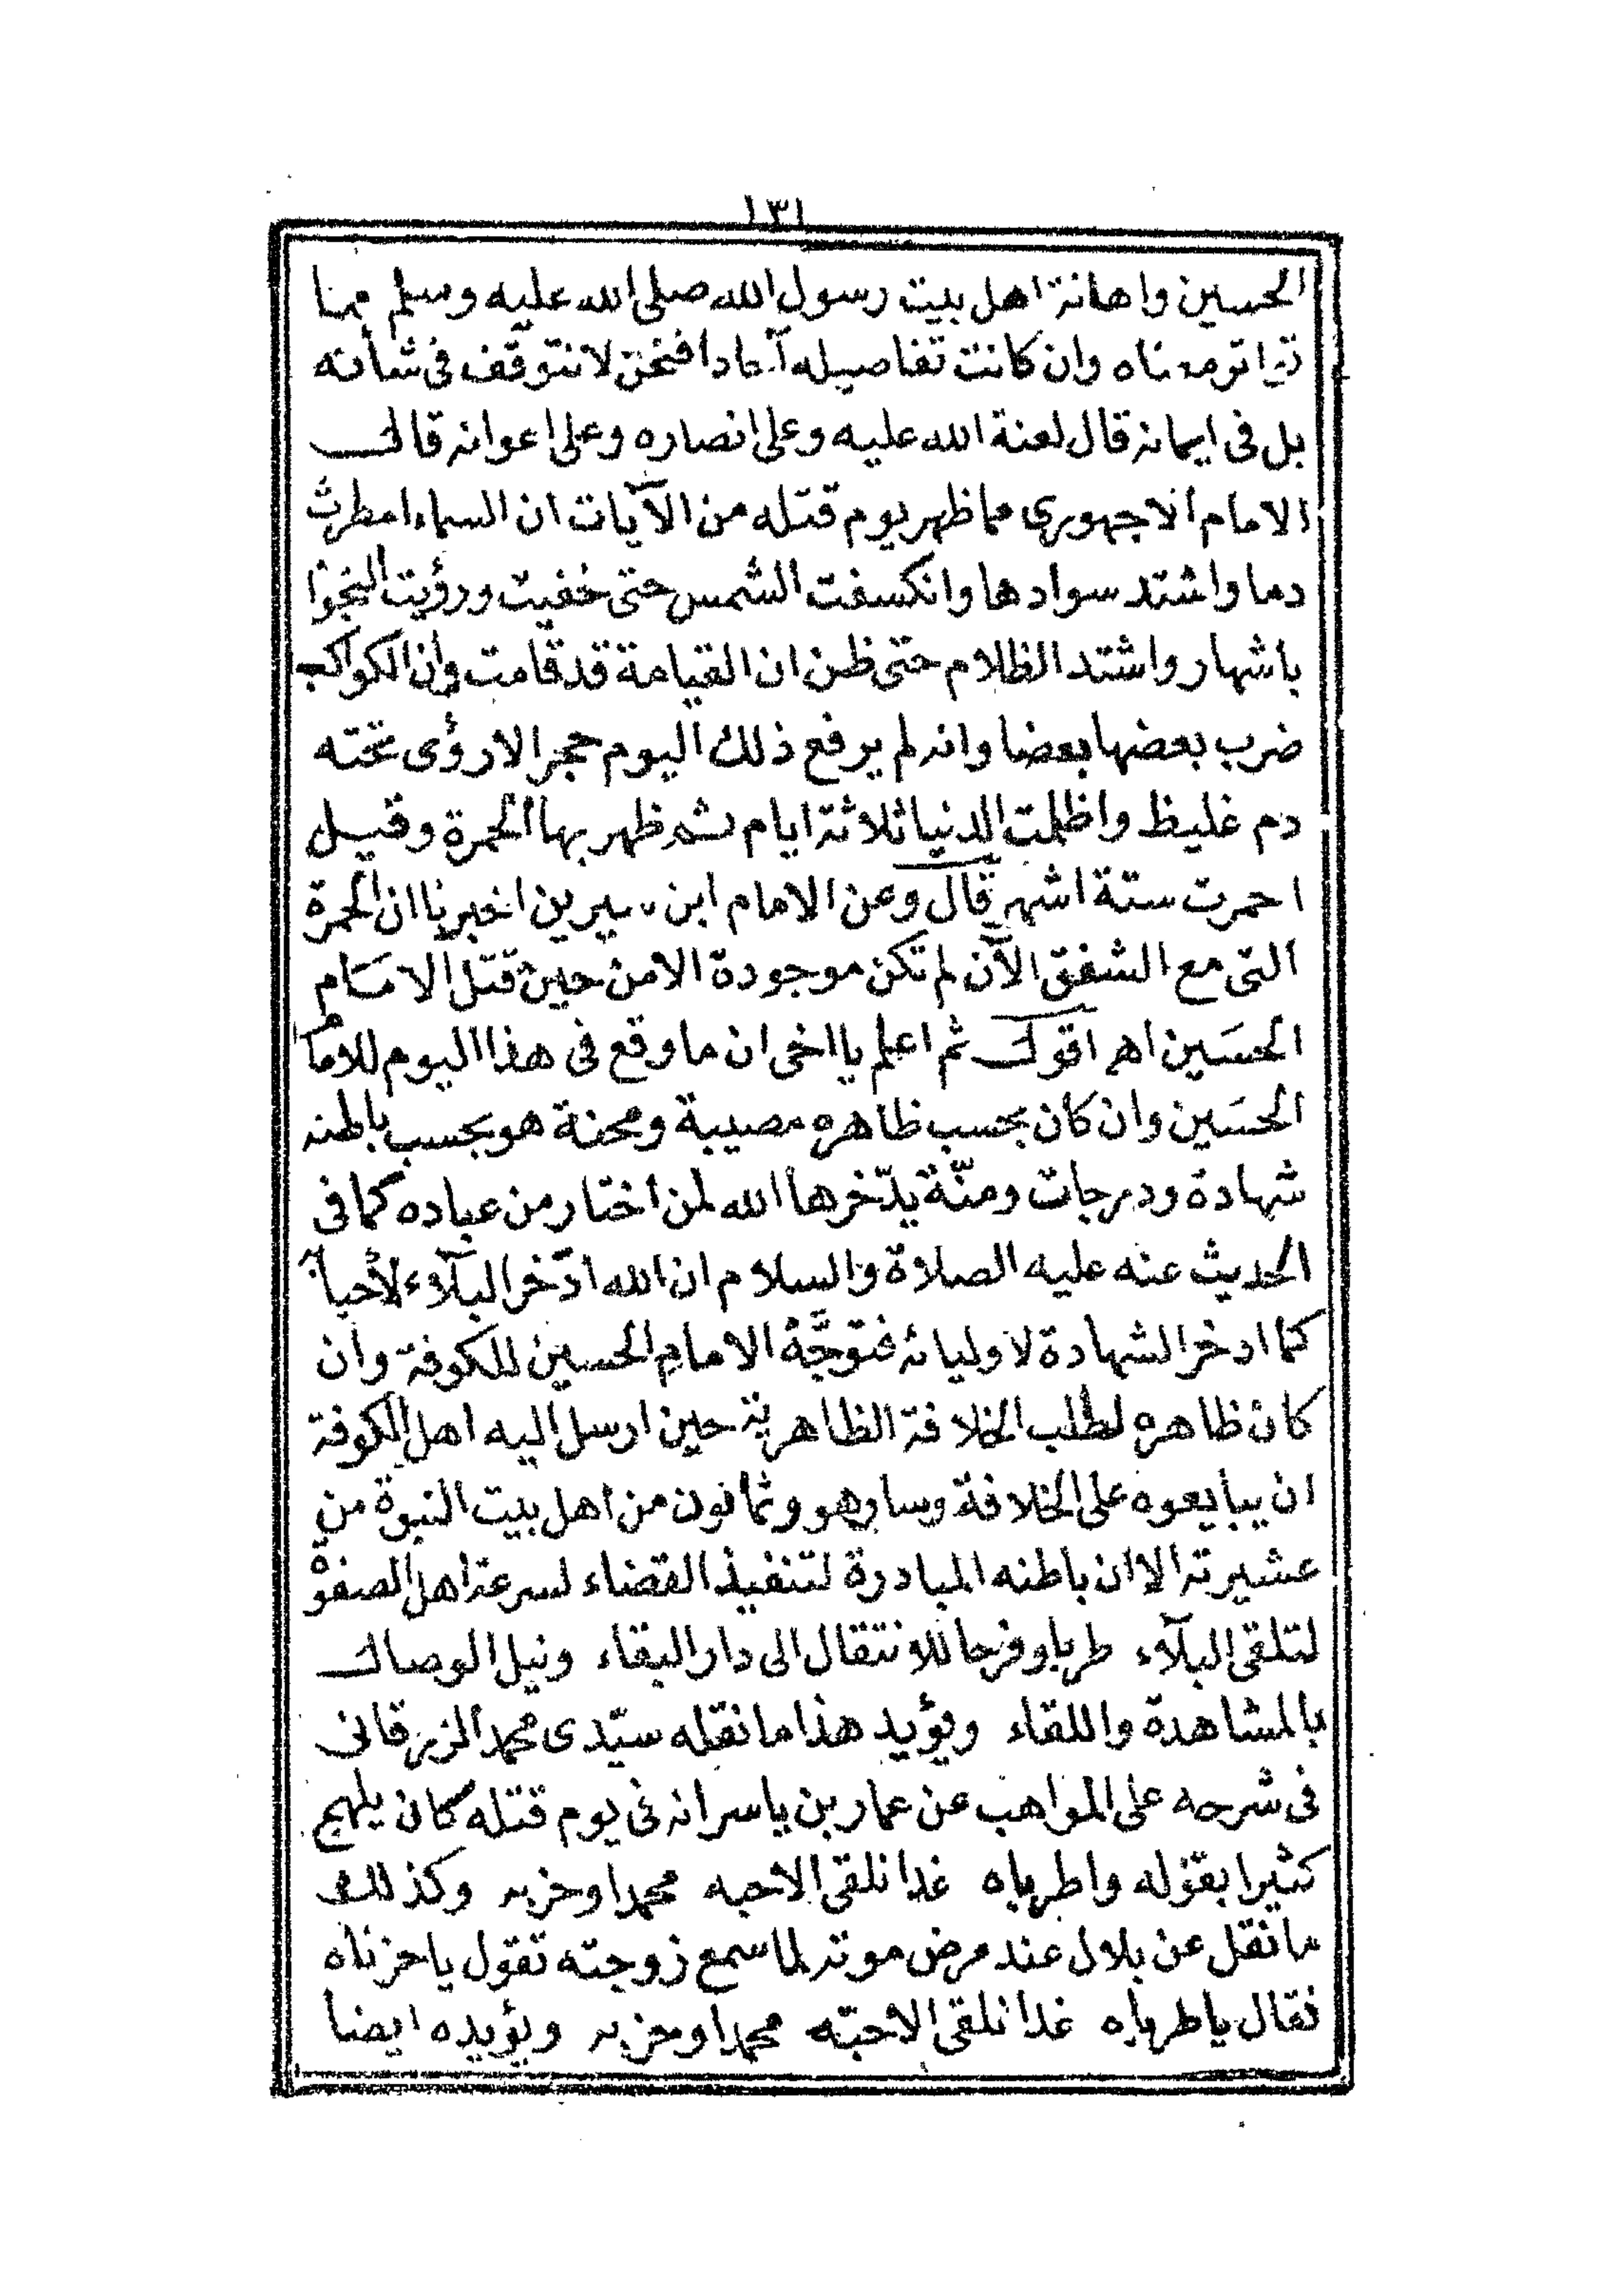 ١٣١
الحسين واهانة اهل بيت رسول الله صلى الله عليه وسلم مما
تواتر معناه وان كانت تفاصيله آحادا فنحن لا نتوقف فى شأنه
بل فى ايمانه قال لعنة الله عليه وعلى انصاره وعلى اعوانه قال
الامام الاجهورى مما ظهر يوم قتله من الآيات ان السماء امطرت
دما واشتد سوادها وانكسفت الشمس حتى خفيت ورؤيت النجوا
باشهار واشتد الظلام حتى ظن ان القيامة قد قامت وان الكواكب
ضرب بعضها بعضا وانه لم يرفع ذلك اليوم حجر الا رؤى تحته
دم غليظ واظلمت الدنيا ثلاثة ايام ثم ظهر بها الحمرة وقيل
احمرت ستة اشهر قال وعن الامام ابن سيرين اخبرنا ان الحمرة
التى مع الشفق الآن لم تكن موجودة الا من حين قتل الامام
الحسين اهـ اقول ثم اعلم يا اخى ان ما وقع فى هذا اليوم للامام
الحسين وان كان بحسب ظاهره مصيبة ومحنة هو بحسب باطنه
شهادة ودرجات ومنّة يدّخرها الله لمن اختار من عباده كما فى
الحديث عنه عليه الصلاة والسلام ان الله ادّخر البلآء لأحبائه
كما ادخر الشهادة لاوليائه فتوجَّهُ الامام الحسين للكوفة وان
كان ظاهره لطلب الخلافة الظاهرية حين ارسل اليه اهل الكوفة
ان يبايعوه على الخلافة وسار هو وثمانون من اهل بيت النبوة من
عشيرته الا ان باطنه المبادرة لتنفيذ القضاء لسرعة اهل الصفوة
لتلقى البلآء طربا وفرحا للانتقال الى دار البقاء ونيل الوصال
بالمشاهدة واللقاء ويؤيد هذا ما نقله سيّدى محمد الزرقانى
فى شرحه على المواهب عن عمار بن ياسر انه فى يوم قتله كان يلهج
كثيرا بقوله واطرباه غدا نلقى الاحبه محمدا وحزبه وكذلك
ما نقل عن بلال عند مرض موته لما سمع زوجته تقول ياحزناه
فقال ياطرباه غدا نلقى الاحبّه محمدا وحزبه ويؤيده ايضا